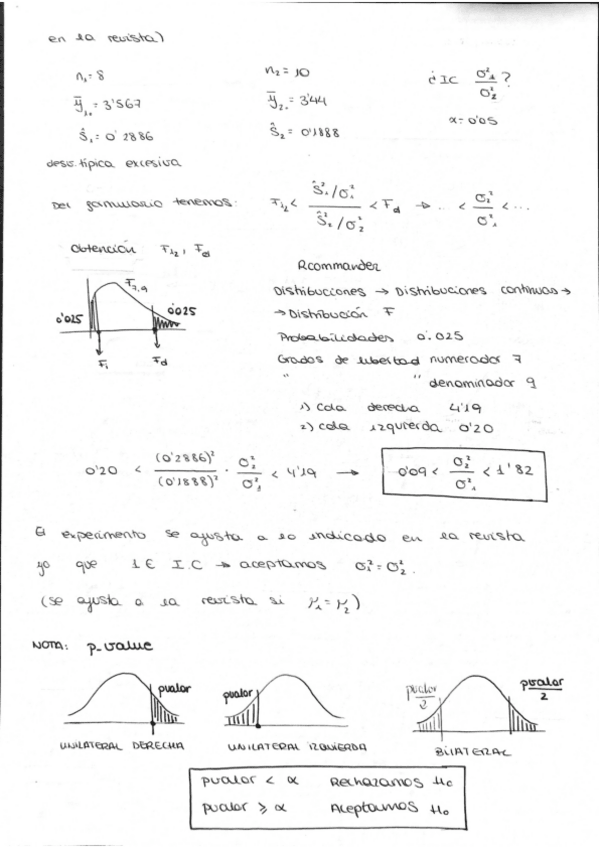 en la revista)
n₁ = 8 n₂ = 10 ¿ IC σ²₁/σ²₂ ?
ȳ₁. = 3'567 ȳ₂. = 3'44 α = 0'05
Ŝ₁ = 0'2886 Ŝ₂ = 0'1888
desv. típica excesiva
Del formulario tenemos: F₁₂ < (Ŝ²₁/σ²₁)/(Ŝ²₂/σ²₂) < Fd → .. < σ²₂/σ²₁ < ...
Obtención F₁₂, Fd
F₇,₉
0'025 0'025
Fi Fd
Rcommander
Distribuciones → Distribuciones continuas →
→ Distribución F
Probabilidades 0'.025
Grados de libertad numerador 7
" " denominador 9
1) Cola derecha 4'19
2) cola izquierda 0'20
0'20 < (0'2886)²/(0'1888)² · σ²₂/σ²₁ < 4'19 → 0'09 < σ²₂/σ²₁ < 1'82
El experimento se ajusta a lo indicado en la revista
ya que 1 ∈ I.C → aceptamos σ²₁ = σ²₂.
(se ajusta a la revista si μ₁ = μ₂)
NOTA: p-value
pvalor pvalor pvalor/2 pvalor/2
UNILATERAL DERECHA UNILATERAL IZQUIERDA BILATERAL
pvalor < α Rechazamos H₀
pvalor ⩾ α Aceptamos H₀